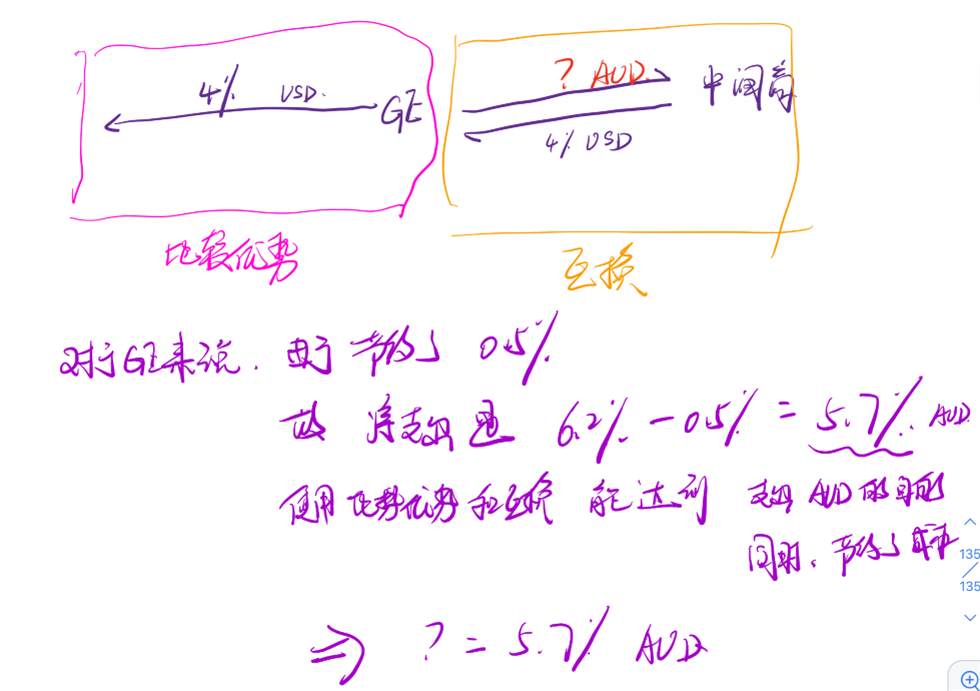 4% USD.
GE
? AUD
中间商
4% USD
比较优势
互换
对于GE来说. 由于 节约了 0.5%
故 净支出是 6.2% - 0.5% = 5.7% AUD
使用比较优势和互换 能达到 支出 AUD 的目的
同时. 节约了成本
135
135
⇒ ? = 5.7% AUD